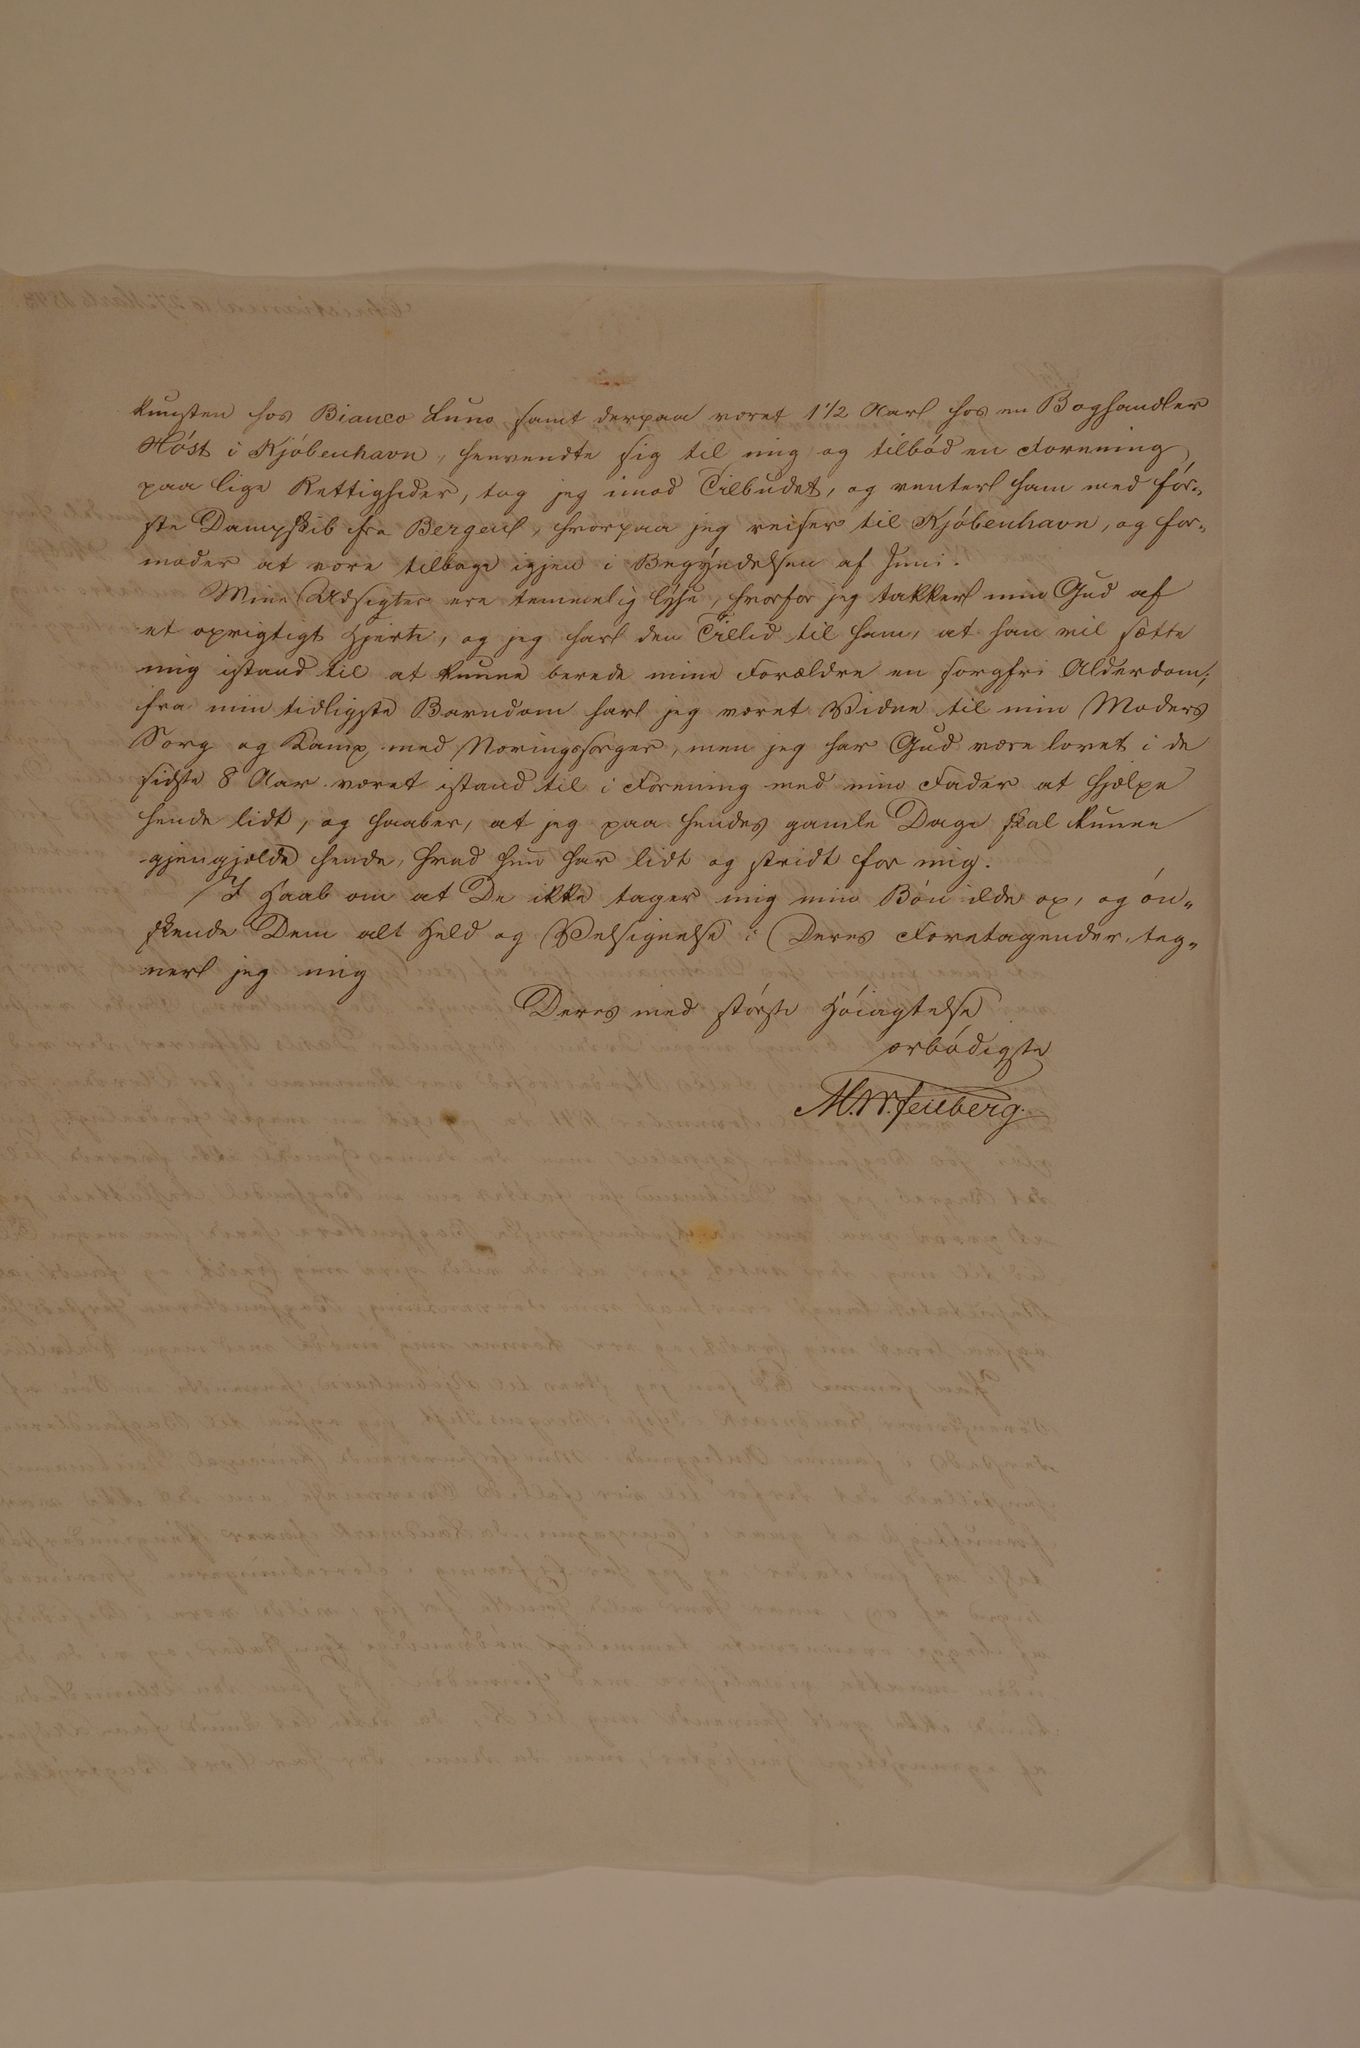 kunsten hos Bianco Luno, samt derpaa været 1 1/2 Aar hos en Boghandler
Höst i Kjöbenhavn, henvendte sig til mig og tilböd en Forening
paa lige Rettigheder, tog jeg imod Tilbudet, og venter ham med för-
ste Dampskib fra Bergen, hvorpaa jeg reiser til Kjöbenhavn, og for-
moder at være tilbage igjen i Begyndelsen af Juni.
Mine Udsigter ere temmelig lyse, hvorfor jeg takker min Gud af
et oprigtigt Hjerte, og jeg har den Tillid til ham, at han vil sætte
mig istand til at kunne berede mine Forældre en sorgfri Alderdom;
fra min tidligste Barndom har jeg været Vidne til min Moders
Sorg og Kamp med Næringssorger, men jeg har Gud være lovet i de
sidste 8 Aar været istand til i Forening med min Fader at hjælpe
hende lidt, og haaber, at jeg paa hendes gamle Dage skal kunne
gjengjælde hende, hvad hun har lidt og stridt for mig.
I Haab om at De ikke tager mig min Bön ilde op, og ön-
skende Dem alt Held og Velsignelse i Deres Foretagender, teg-
ner jeg mig
Deres med störste Höiagtelse
ærbödigste
M. W. Feilberg.